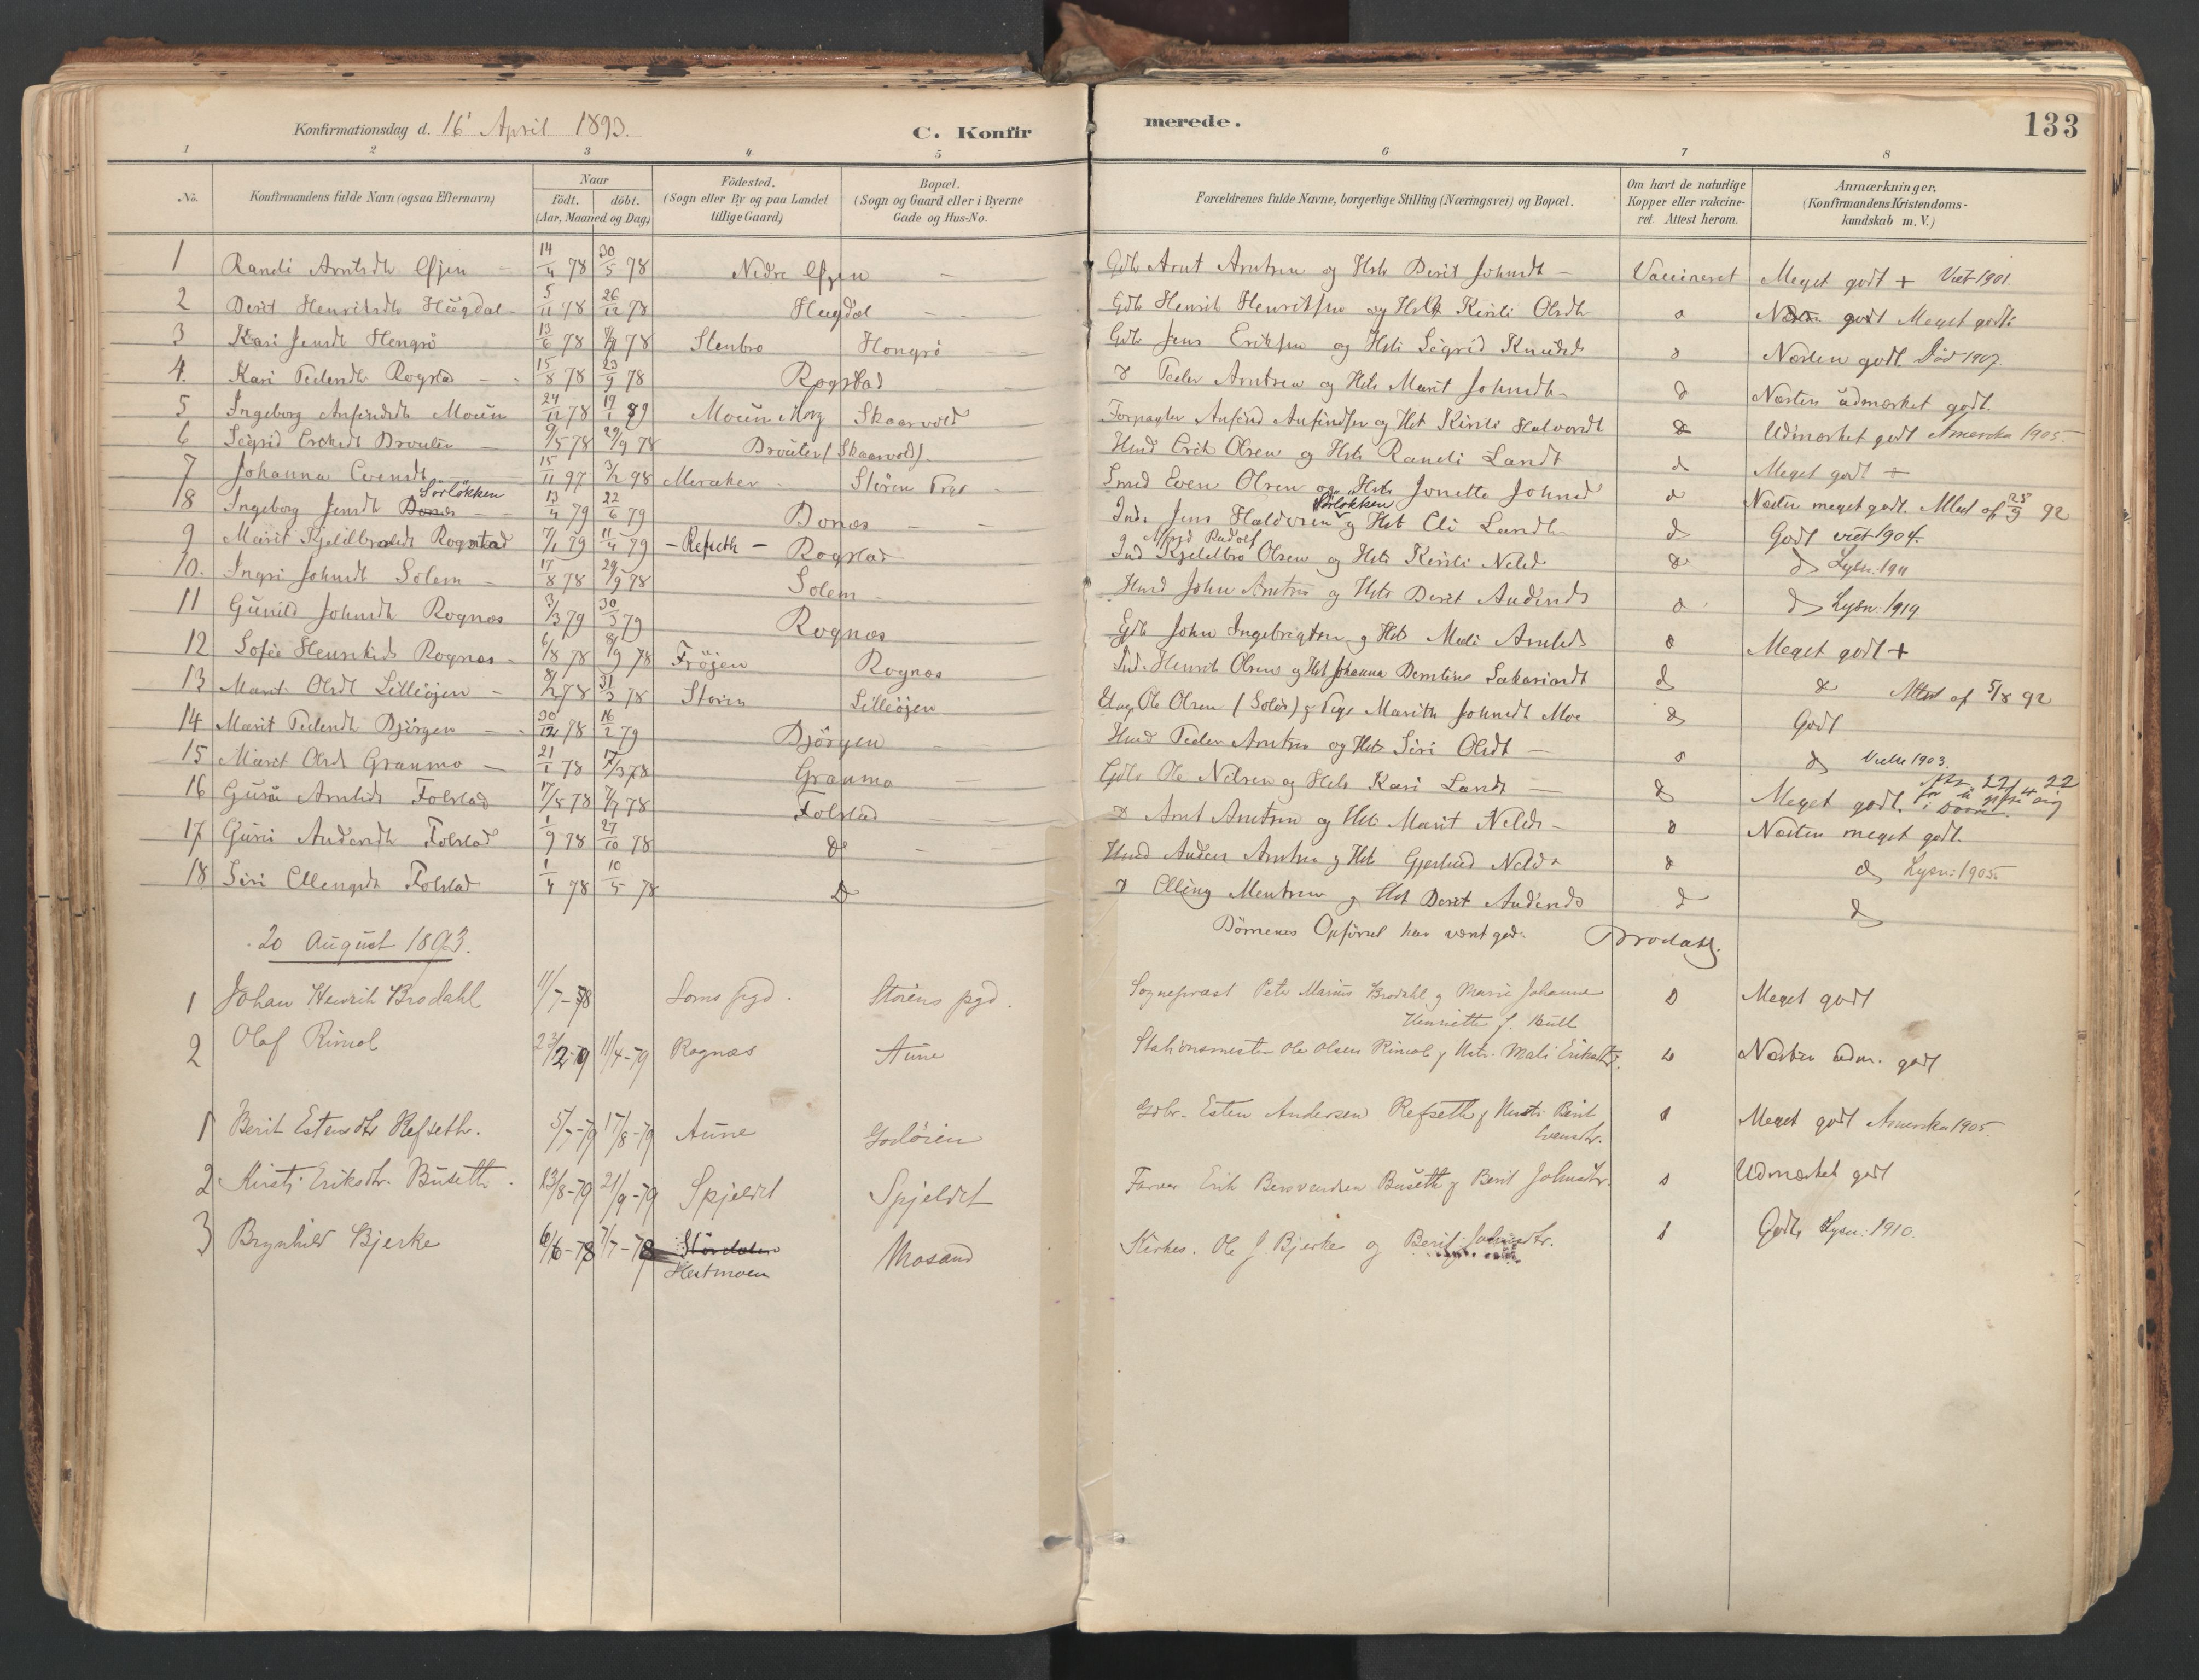 Konfirmationsdag d. 16' April 1893. C. Konfirmerede. 133
1 2 3 4 5 6 7 8
No. Konfirmandens fulde Navn (ogsaa Efternavn) Naar födt. döbt. (Aar, Maaned og Dag) Födested. (Sogn eller By og paa Landet tillige Gaard) Bopæl. (Sogn og Gaard eller i Byerne Gade og Hus-No. Forældrenes fulde Navne, borgerlige Stilling (Næringsvei) og Bopæl. Om havt de naturlige Kopper eller vakcineret. Attest herom. Anmærkninger. (Konfirmandens Kristendomskundskab m. V.)
1 Randi Arntsdtr 14/4 78 30/5 78 Nedre Arnt Arntsen og Berit Johnsdt Vaccineret Meget godt + Viet 1901.
2 Berit Henriksdtr Hugdal 5/11 78 26/12 78 Hugdal Henrik Henriksen og Kirsti Olsdtr Meget godt
3 Kari Jensdt Hengrö 13/6 78 78 Stenbro Hongrö Jens Eriksen og Sigrid Knudsd Næsten godt. Död 1907.
4. Kari Pedersdtr Rogstad 15/8 78 23/9 78 Rogstad Peder Arntsen og Marit Johnsdtr Næsten udmærket godt.
5 Ingeborg Anfindsdt Moen 24/12 78 19/1 89 Moen Skaarvold Forpagter Anfind Anfindsen og Kirsti Halvorsdt Udmærket godt Amerika 1905.
6 Sigrid Eriksdt 9/5 78 29/9 78 (Skaarvold) Erik Olsen og Randi Larsdt Meget godt +
7 Johanna Evensdt 15/11 97 3/2 98 Meraker Stören Even Olsen og Jonetta Johnsd Næsten meget godt. Attest af 28/9 92
18 Ingeborg Jensdt Bones Sörlökken 13/4 79 22/6 79 Bones Jens Haldorsen Sörlökken og Eli Larsdtr Godt viet 1904.
9 Marit Kjelilbroelsdt Rogstad 7/1 79 11/4 79 - Refseth - Rogstad Olsen og Kirsti Nilsd Lysn: 1911
10. Ingri Johnsdt Solem 17/8 78 29/9 78 Solem John Arntsen og Berit Andersd Lysn: 1919
11 Gunild Johnsdt Rognes 3/3 79 30/3 79 Rognes John Ingebrigtsen og Mali Arntsd Meget godt +
12 Sofie Henriksd Rognes 6/8 78 8/9 78 Fröjen Rognes Henrik Olsen og Johanna Berntine Sakariasdt Attest af 5/8 92
13 Marit Olsdt Lilleöjen 8/2 78 31/3 78 Stören Lilleöjen Ole Olsen (Solör) og Pige Marith Johnsdt Moe Godt
14 Marit Pedersdt Björgen 30/12 78 16/2 79 Björgen Peder Arntsen og Siri Olsdt Viet 1903.
15 Marit Olsd Granmo 21/1 78 17/3 78 Granmo Ole Nilsen og Kari Larsdt Meget godt.
16 Guru Arntsd Folstad 17/5 78 7/7 78 Folstad Arnt Arntsen og Marit Nilsd Næsten meget godt.
17 Guri Andersdt Folstad 1/9 78 27/10 78 Do Anders Arntsen og Gjertrud Nilsd Lysn: 1905
18 Siri Ellingsdt Folstad 1/4 78 10/5 78 Do Elling Mentsen og Berit Andersd
Börnenes Opförsel har været god. Brodahl.
20 August 1893.
1 Johan Henrik Brodahl 11/7-78 Soms pgd. Störens pgd. Sogneprest Peter Marius Brodahl og Marie Johanne Henriette f. Bull Meget godt
2 Olaf Rimol 23/2-79 11/4-79 Rognes Aune Stationsmester Ole Olsen Rimol og Hstr. Mali Eriksdtr. Næsten udm. godt
1 Berit Estensdtr Refseth. 5/7-79 17/8-79 Aune Godöien Gdbr. Esten Andersen Refseth og Hustr. Berit Evensdtr. Meget godt Amerika 1905.
2 Kirsti Eriksdtr. Buseth. 13/8-79 21/9-79 Spjeldet Spjeldet Farver Erik Buseth og Berit Johnsdtr. Udmærket godt
3 Brynhild Bjerke 6/6-78 7/7-78 Stördalen Hestmoen Mosand Kirkes. Ole J. Bjerke og Berit Godt Lysn: 1910.